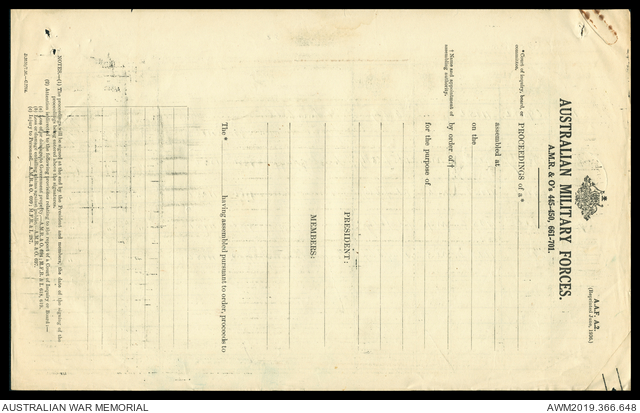 A.A.F. A.2.
(Reprinted June, 1936.)
AUSTRALIAN MILITARY FORCES.
A.M.R. & O's 445-450, 661-701.
*Court of inquiry, board, or
commission.
PROCEEDINGS of a*
assembled at
on the
† Name and appointment of
convening authority.
by order of †
for the purpose of
PRESIDENT:
MEMBERS:
The * having assembled pursuant to order, proceeds to
NOTES.—(1) The proceedings will be signed at the end by the President and members, the date of the signing of the
proceedings being entered above the signatures.
(2) Attention is directed to the following provisions relating to the report of a Court of Inquiry or Board:—
AUSTRALIAN WAR MEMORIAL
AWM2019.366.648